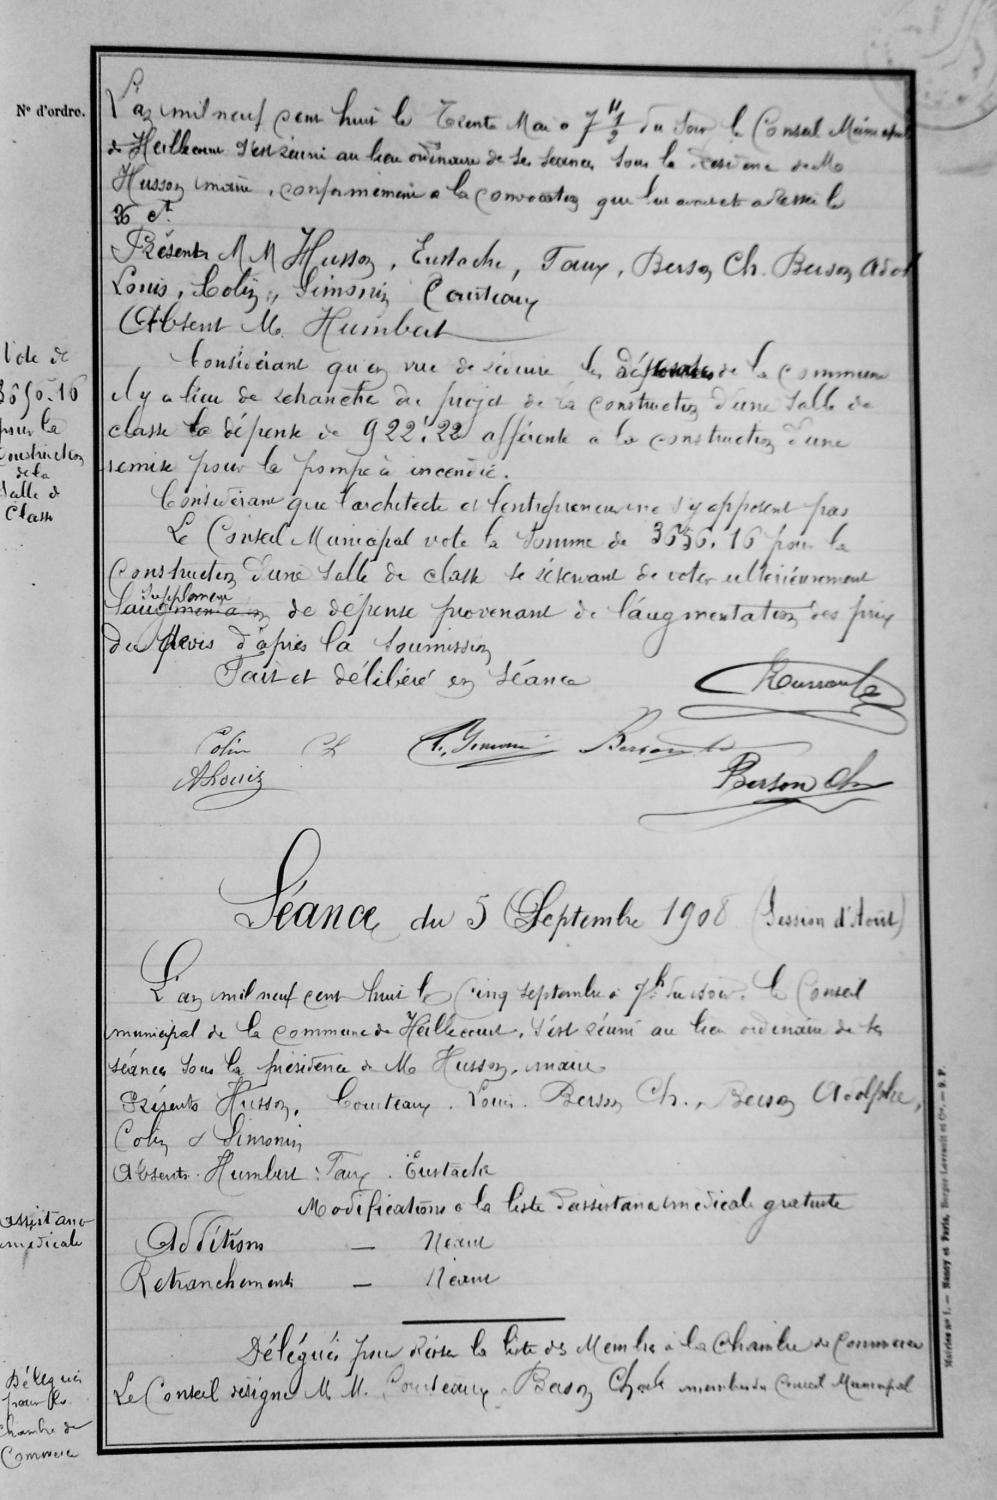 N° d'ordre.
L'an mil neuf cent huit le Trente Mai à 7 h 1/2 du soir le Conseil Municipal
de Heillecourt s'est réuni au lieu ordinaire de ses séances sous la Présidence de Mo
Husson maire, conformément à la convocation que leur avait adressée le
26 ct
Présents M M Husson, Eustache, Taux, Berson Ch. Berson Adol
Louis, Colin, Simonin Courteaux
Absent M. Humbert
Vote de
3650.16
pour la
construction
de la
Salle de
Classe
Considérant qu'en vue de réduire les dépenses de la commune
il y a lieu de retrancher du projet de la construction d'une salle de
classe la dépense de 922.22 afférente à la construction d'une
remise pour la pompe à incendie.
Considérant que l'architecte et l'entrepreneur ne s'y opposent pas
Le Conseil Municipal vote la somme de 3650.16 pour la
Construction d'une salle de classe se réservant de voter ultérieurement
supplément
l'augmentation de dépense provenant de l'augmentation des prix
du devis d'après la soumission
Fait et délibéré en séance
Colin Ch
A Louis
Berson Ch
Séance du 5 Septembre 1908 (Session d'Août)
L'an mil neuf cent huit le Cinq septembre à 7 h. du soir. le Conseil
municipal de la commune de Heillecourt, s'est réuni au lieu ordinaire de ses
séances sous la présidence de Mo Husson, maire
Présents Husson, Courteaux. Louis. Berson Ch., Berson Adolphe,
Colin & Simonin
Absents. Humbert : Taux. Eustache
assistance
médicale
Modifications à la liste d'assistance médicale gratuite
Additions — Néant
Retranchements — Néant
Délégués
pour la
Chambre de
Commerce
Délégués pour réviser la liste des Membres à la Chambre de Commerce
Le Conseil désigne M. M. Courteaux & Berson Charles membres du Conseil Municipal
Mairies n° 1. — Nancy et Paris, Berger-Levrault et Cie. — S. P.